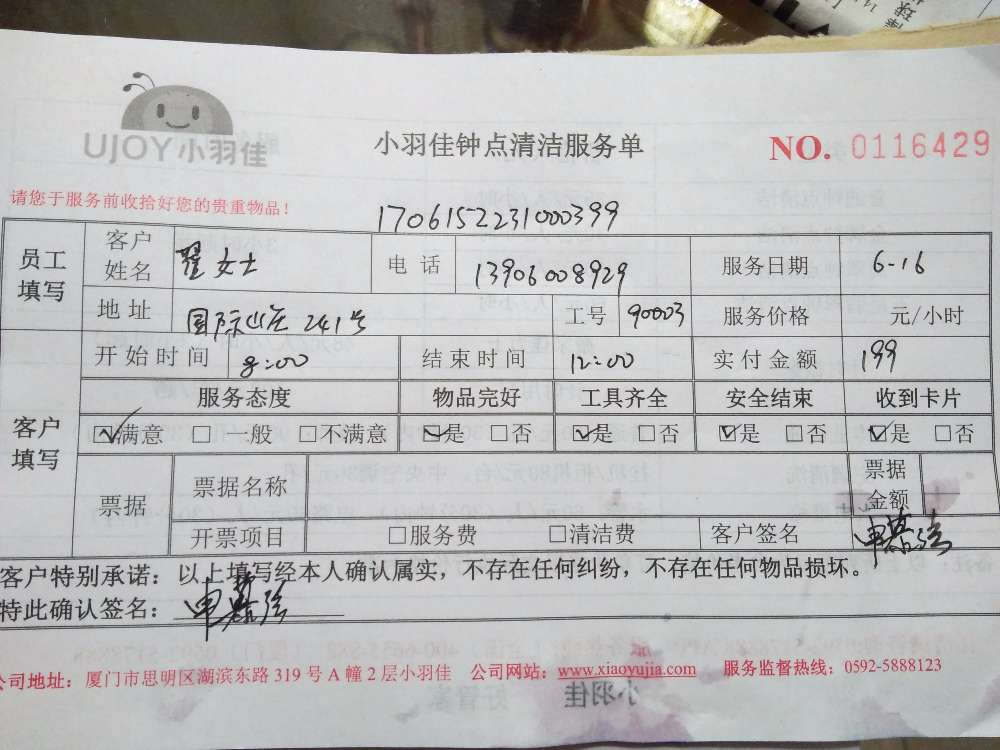 UJOY小羽佳
小羽佳钟点清洁服务单
NO. 0116429
请您于服务前收拾好您的贵重物品！
1706152231000399
员工填写 客户姓名 翟女士 电话 13906008929 服务日期 6-16
地址 国际山庄 241号 工号 90003 服务价格 元/小时
客户填写 开始时间 8:00 结束时间 12:00 实付金额 199
服务态度 物品完好 工具齐全 安全结束 收到卡片
☑满意 □一般 □不满意 ☑是 □否 ☑是 □否 ☑是 □否 ☑是 □否
票据 票据名称 票据金额
开票项目 □服务费 □清洁费 客户签名
客户特别承诺：以上填写经本人确认属实，不存在任何纠纷，不存在任何物品损坏。
特此确认签名：
公司地址：厦门市思明区湖滨东路 319 号 A 幢 2 层小羽佳 公司网站：www.xiaoyujia.com 服务监督热线：0592-5888123